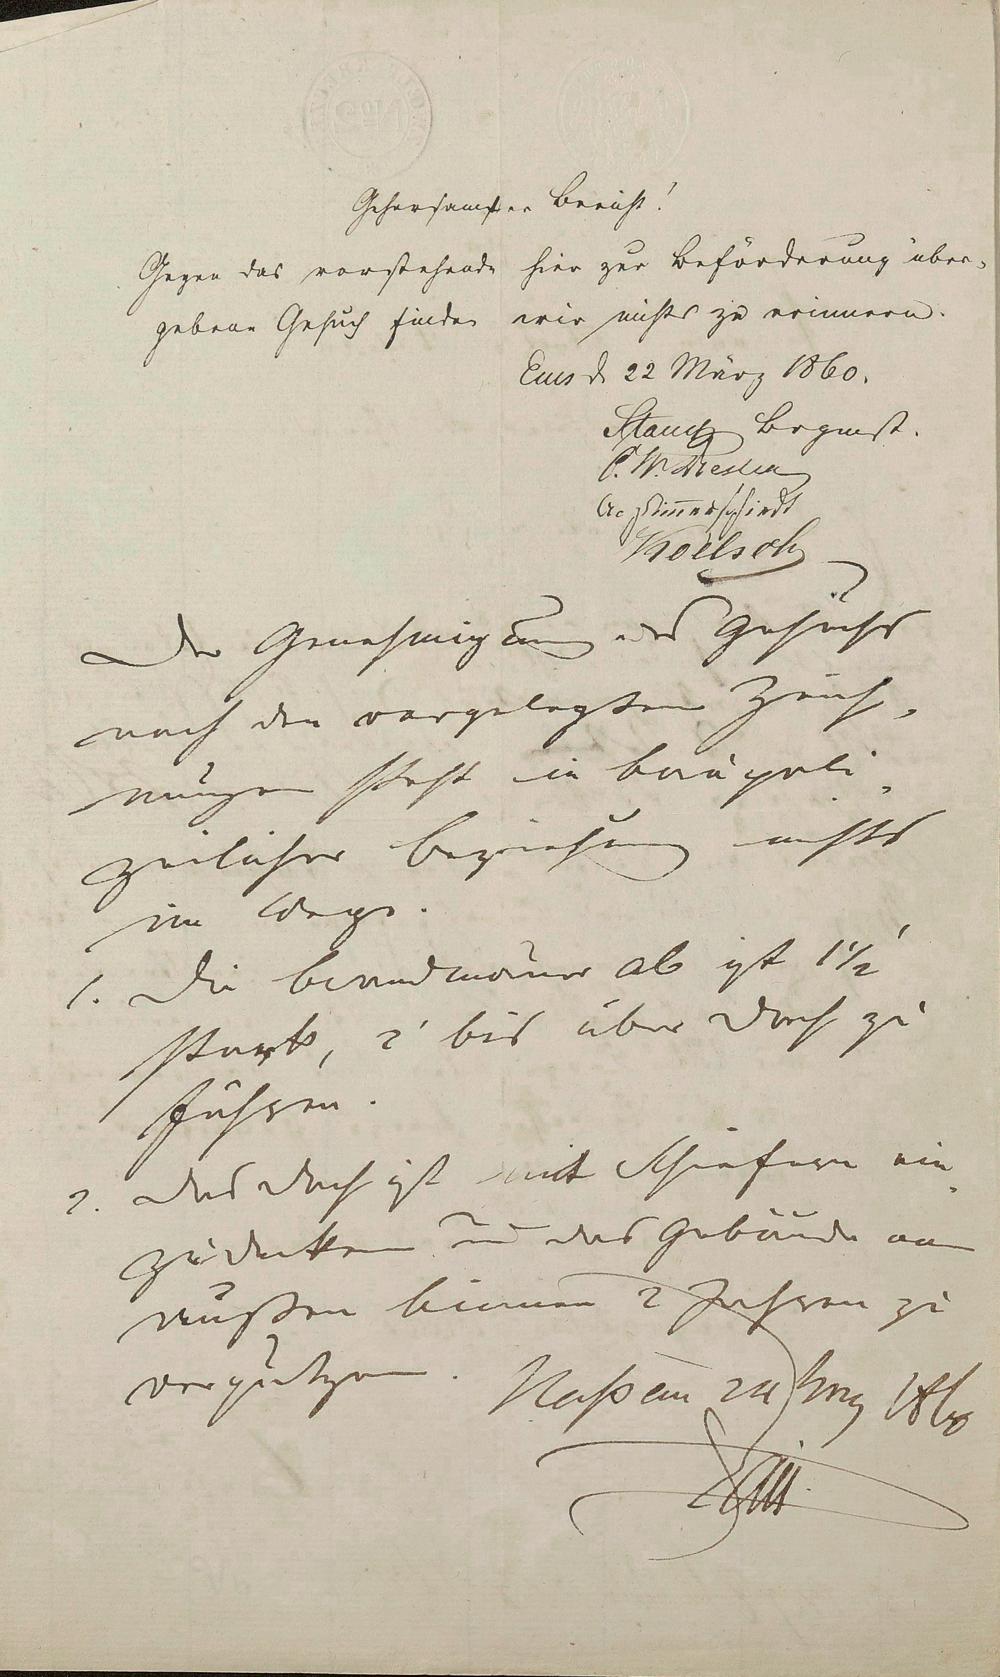 Gehorsamster Bericht!
Gegen das vorstehende hier zur Beförderung über-
gebene Gesuch finden wir nichts zu erinnern.
Ems d. 22 März 1860.
Brgmst.
Der Genehmigung des Gesuchs
nach den vorgelegten Zeich-
nungen steht in baupoli-
zeilicher Beziehung nichts
im Wege.
1. Die Brandmauer ab ist 1½'
stark, 2' bis über Dach zu
führen.
2. Das Dach ist mit Schiefern ein-
zudecken und das Gebäude von
außen binnen 2 Jahren zu
verputzen.
Nassau